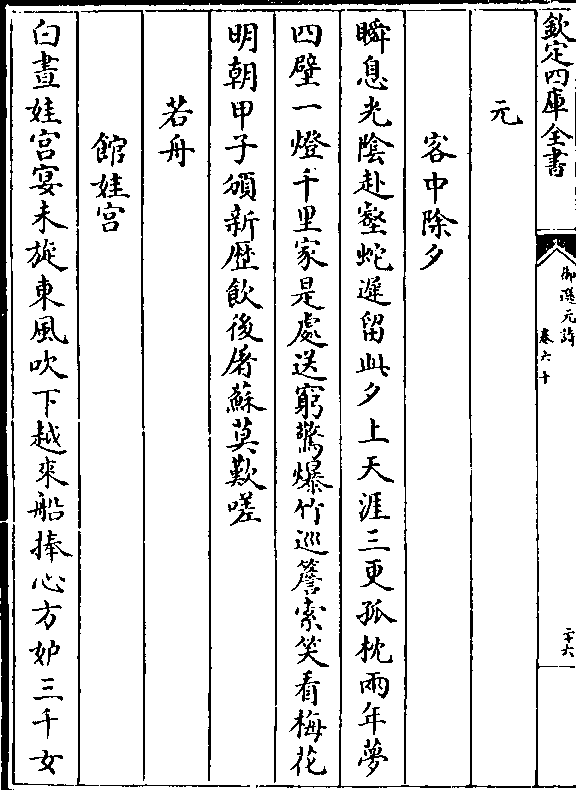 欽定四庫全書
御選元詩
卷六十
二十六
元
客中除夕
瞬息光陰赴壑蛇遲留此夕上天涯三更孤枕兩年夢
四壁一燈千里家是處送窮驚爆竹巡簷索笑看梅花
明朝甲子頒新歴飲後屠蘇莫歎嗟
若舟
館娃宫
白晝娃宫宴未旋東風吹下越來船捧心方妒三千女